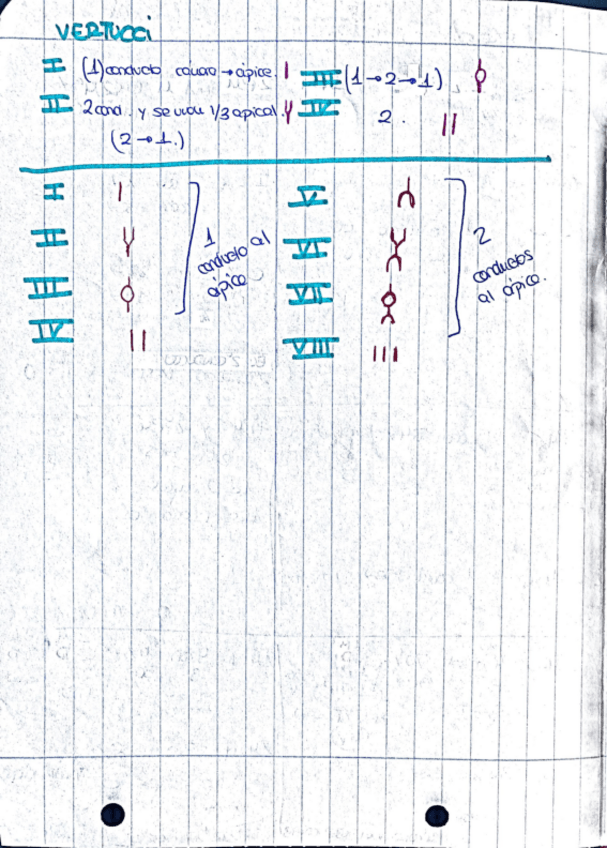 VERTUCCI
I (1) conducto cámara → ápice. III (1→2→1)
II 2 cond. y se unen 1/3 apical. IV 2.
(2→1.)
I V
II 1 conducto al ápice VI 2 conductos al ápice.
III VII
IV VIII